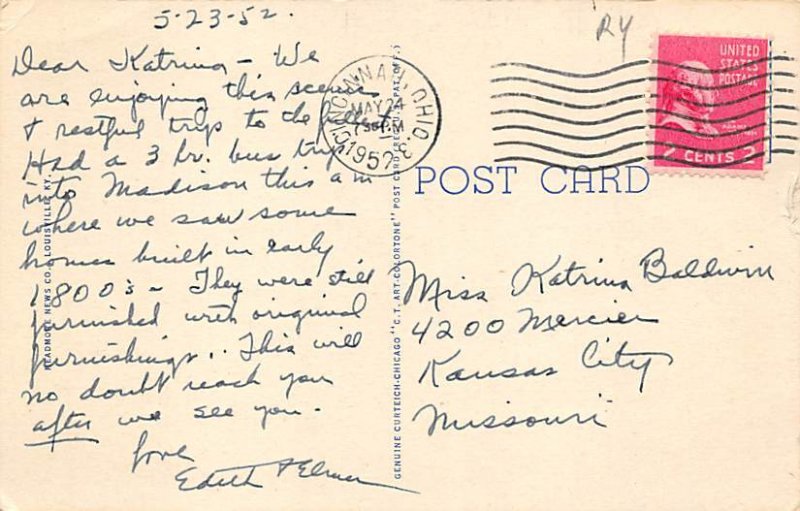 5-23-52.
Dear Katrina - We
are enjoying this scenic
& restful trip to the fullest.
Had a 3 hr. bus trip
into Madison this a m
where we saw some
homes built in early
1800's - They were still
furnished with original
furnishings.. This will
no doubt reach you
after we see you.
Love
Edith & Elmer
READMORE NEWS CO., LOUISVILLE, KY.
GENUINE CURTEICH-CHICAGO "C.T. ART-COLORTONE" POST CARD (REG. U.S. PAT. OFF.)
RY
CINCINNATI, OHIO
MAY 24
PM
1952
UNITED
STATES
POSTAGE
2 CENTS 2
POST CARD
Miss Katrina Baldwin
4200 Mercier
Kansas City
Missouri